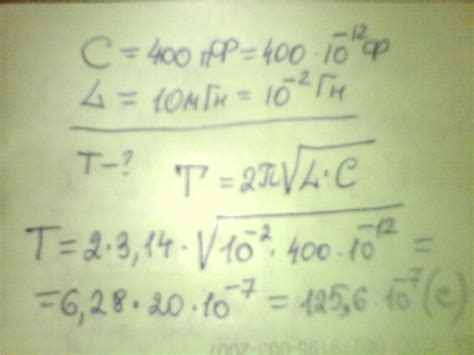 C = 400 пФ = 400 · 10⁻¹² Ф
L = 10 мГн = 10⁻² Гн
T - ?   T = 2π√L·C
T = 2·3,14·√10⁻²·400·10⁻¹² =
= 6,28·20·10⁻⁷ = 125,6·10⁻⁷ (с)